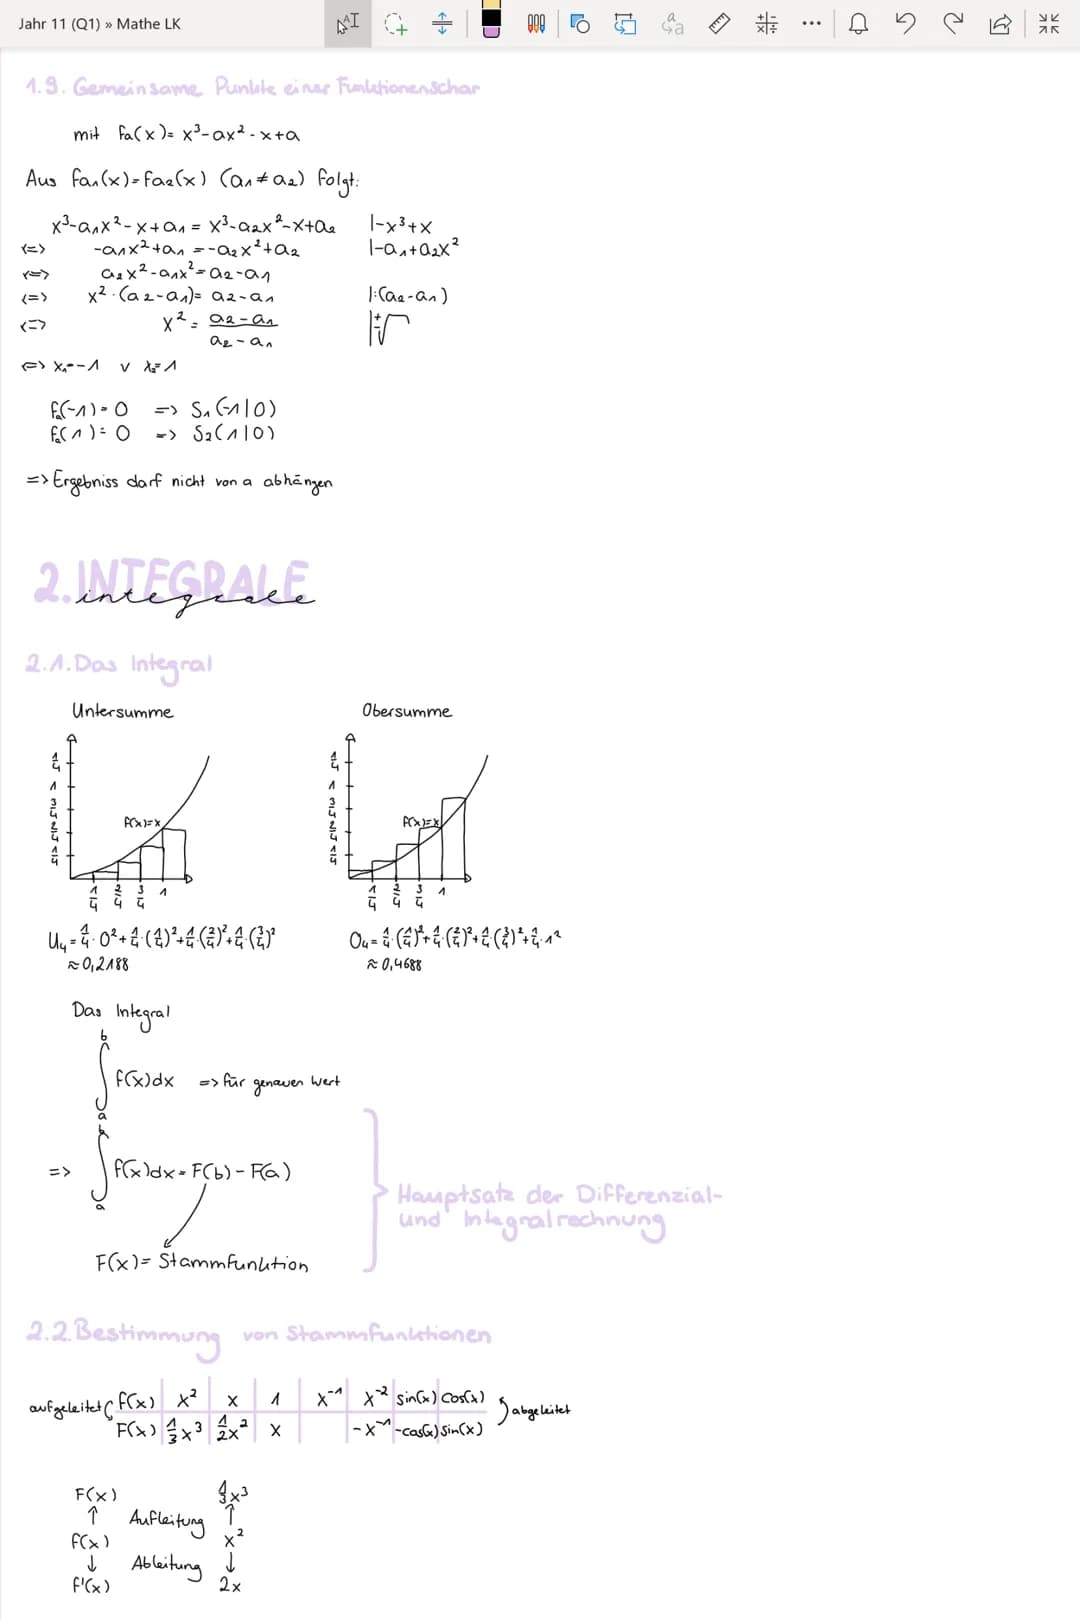 Jahr 11 (Q1) » Mathe LK
1.9. Gemeinsame Punkte einer Funktionenschar
mit fa(x)= x³-ax²-x+a
Aus fa₁(x)=fa₂(x) (a₁≠a₂) folgt:
x³-a₁x²-x+a₁ = x³-a₂x²-x+a₂ |-x³+x
<=> -a₁x²+a₁ = -a₂x²+a₂ |-a₁+a₂x²
<=> a₂x²-a₁x² = a₂-a₁
<=> x²·(a₂-a₁)= a₂-a₁ |:(a₂-a₁)
<=> x² = (a₂-a₁)/(a₂-a₁) |±√
<=> x₁=-1 v x₂=1
fa(-1)=0 => S₁(-1|0)
fa(1)=0 => S₂(1|0)
=> Ergebniss darf nicht von a abhängen
2. INTEGRALE
integrale
2.1. Das Integral
Untersumme Obersumme
1/4 1 3/4 2/4 1/4 f(x)=x 1/4 2/4 3/4 1
1/4 1 3/4 2/4 1/4 f(x)=x 1/4 2/4 3/4 1
U₄=1/4·0²+1/4·(1/4)²+1/4·(2/4)²+1/4·(3/4)² O₄=1/4·(1/4)²+1/4·(2/4)²+1/4·(3/4)²+1/4·1²
≈0,2188 ≈0,4688
Das Integral
b
∫ f(x)dx => für genauen Wert
a
b
=> ∫ f(x)dx = F(b) - F(a)
a
Hauptsatz der Differenzial-
und Integralrechnung
F(x)= Stammfunktion
2.2. Bestimmung von Stammfunktionen
aufgeleitet f(x) x² x 1 x⁻¹ x⁻² sin(x) cos(x) abgeleitet
F(x) 1/3x³ 1/2x² x -x⁻¹ -cos(x) sin(x)
F(x) 1/3x³
↑ Aufleitung ↑
f(x) x²
↓ Ableitung ↓
f'(x) 2x